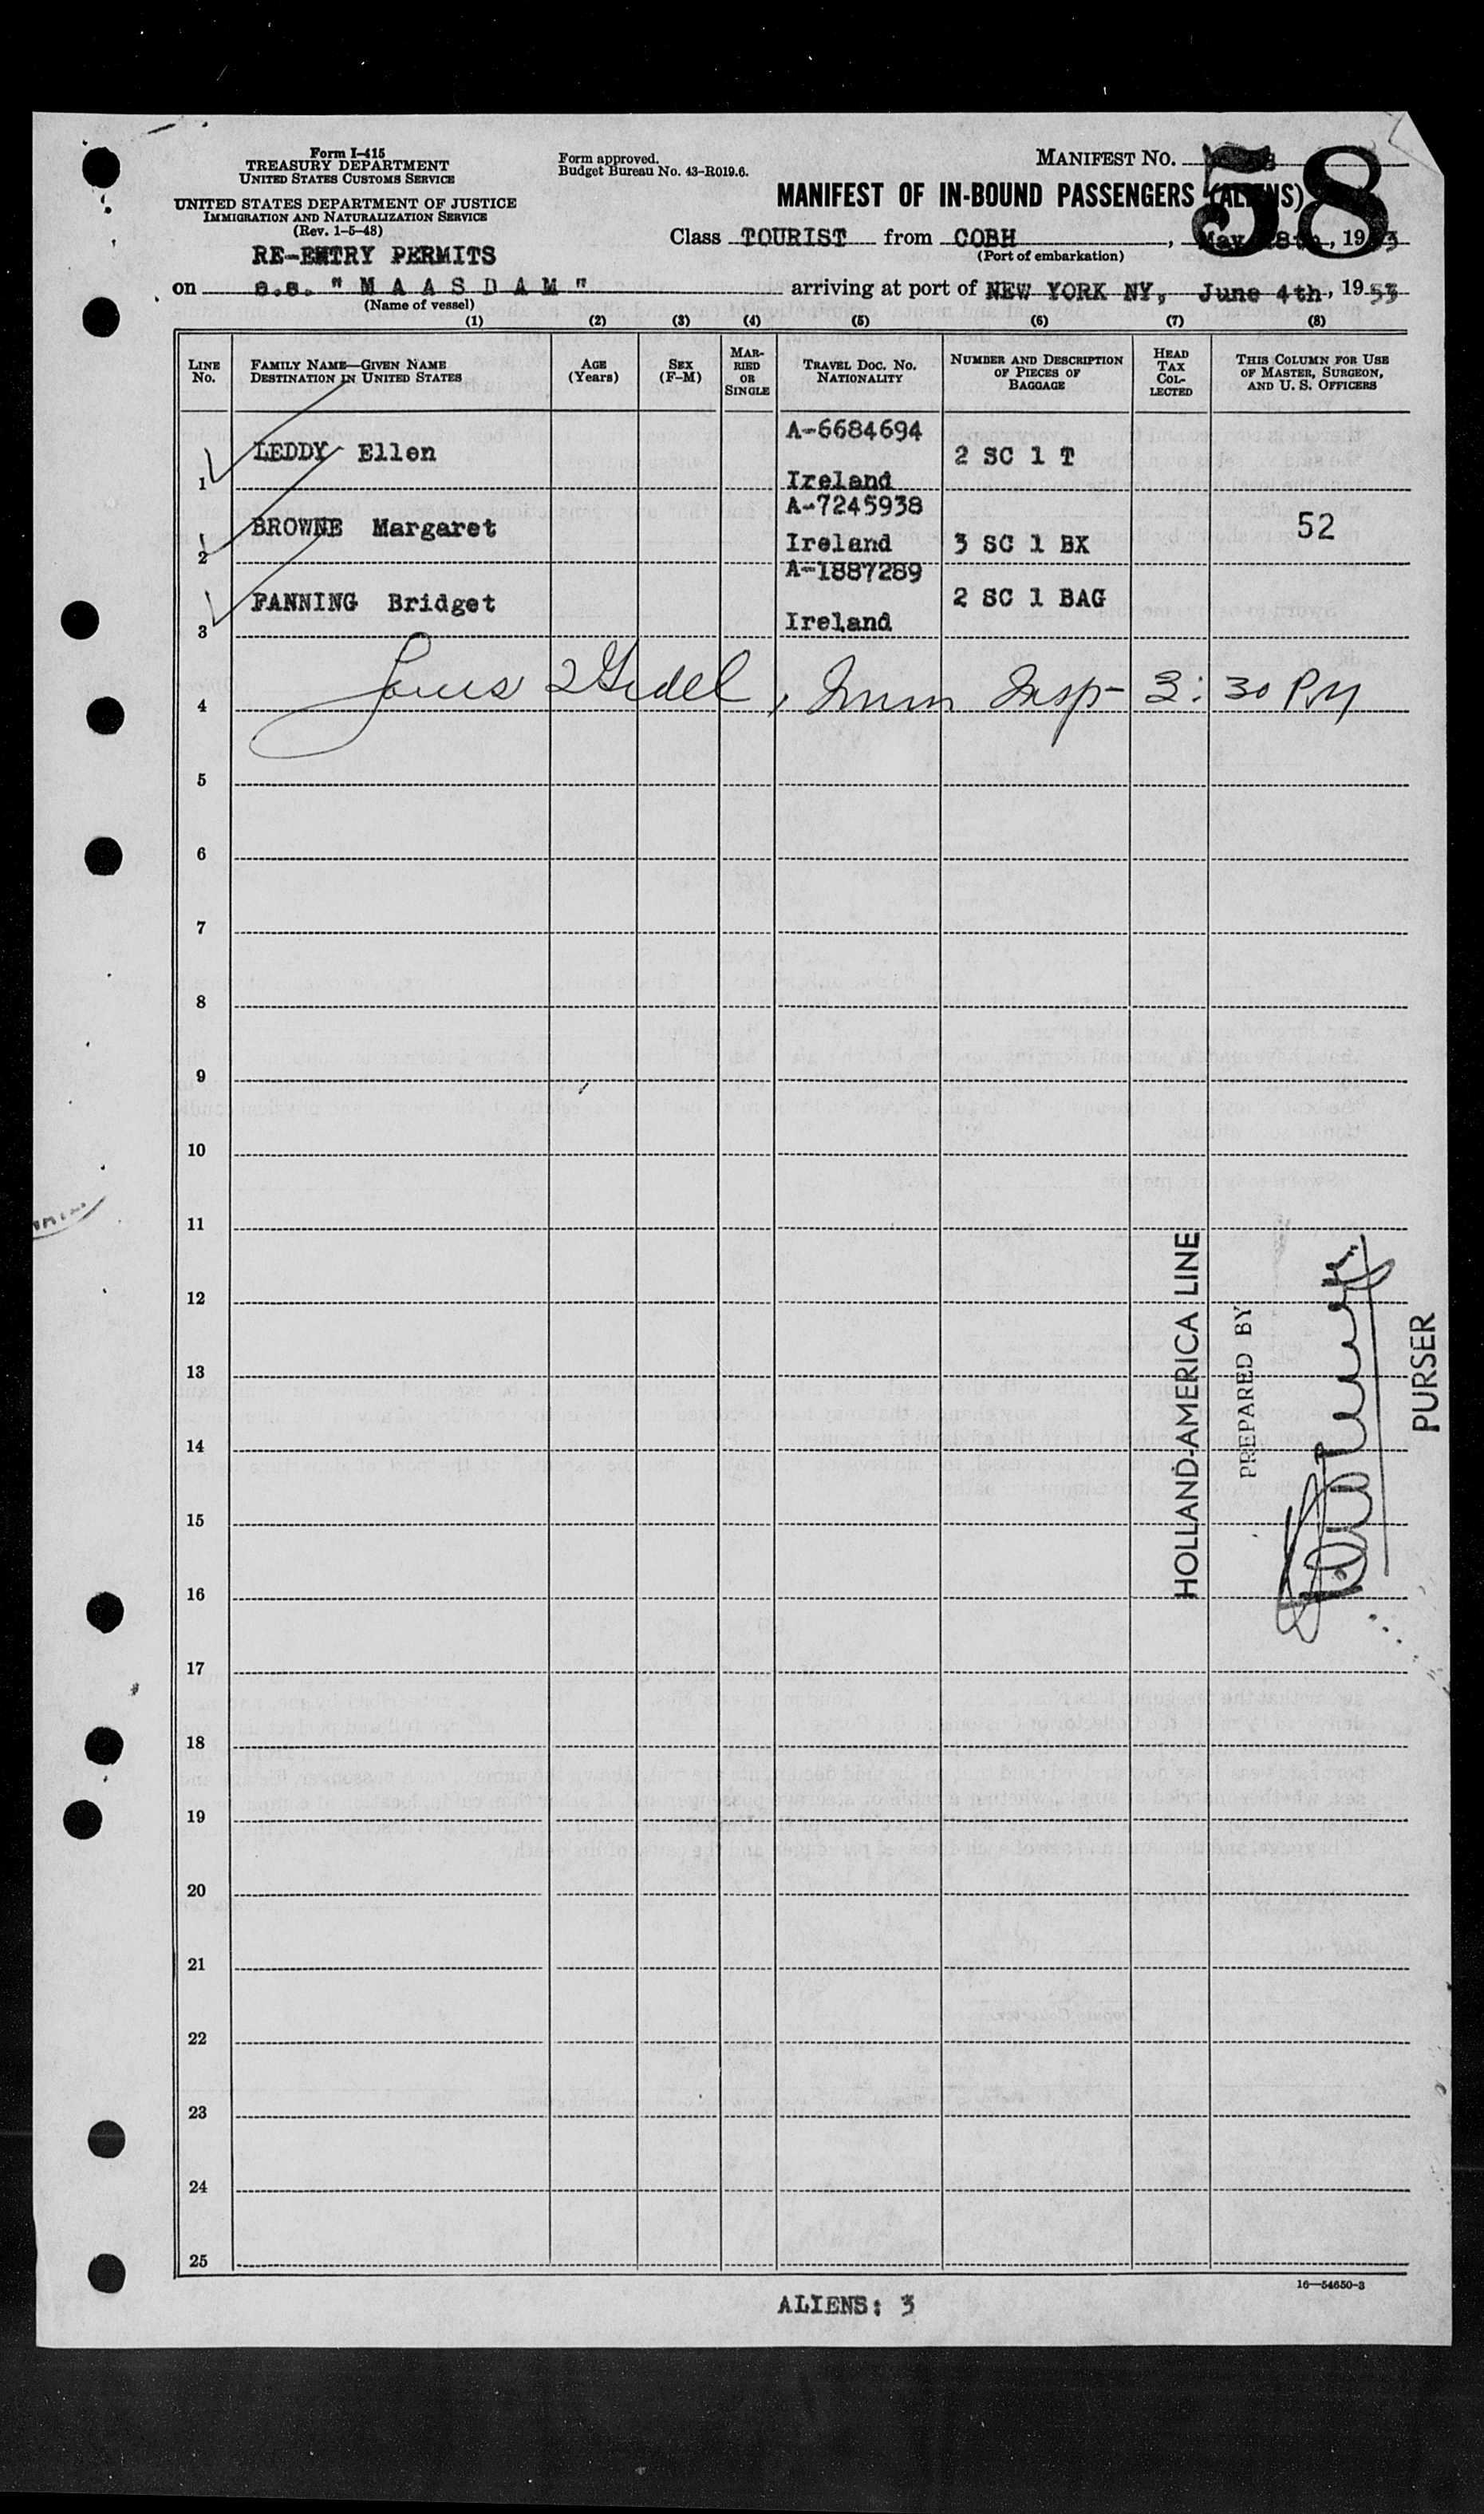 Form I-415
TREASURY DEPARTMENT
UNITED STATES CUSTOMS SERVICE
UNITED STATES DEPARTMENT OF JUSTICE
IMMIGRATION AND NATURALIZATION SERVICE
(Rev. 1-5-48)
Form approved.
Budget Bureau No. 43-R019.6.
MANIFEST NO.
58
MANIFEST OF IN-BOUND PASSENGERS (ALIENS)
Class TOURIST from COBH, May 28th, 1953
(Port of embarkation)
RE-ENTRY PERMITS
on s.s. "MAASDAM" arriving at port of NEW YORK NY, June 4th, 1953
(Name of vessel)
(1) (2) (3) (4) (5) (6) (7) (8)
LINE No. FAMILY NAME—GIVEN NAME DESTINATION IN UNITED STATES AGE (Years) SEX (F-M) MARRIED OR SINGLE TRAVEL DOC. NO. NATIONALITY NUMBER AND DESCRIPTION OF PIECES OF BAGGAGE HEAD TAX COLLECTED THIS COLUMN FOR USE OF MASTER, SURGEON, AND U. S. OFFICERS
1 LEDDY Ellen A-6684694 Ireland 2 SC 1 T
2 BROWNE Margaret A-7245938 Ireland 3 SC 1 BX 52
3 FANNING Bridget A-1887289 Ireland 2 SC 1 BAG
4 Louis, Imm Insp- 3:30 PM
5
6
7
8
9
10
11
12
13
14
15
16
17
18
19
20
21
22
23
24
25
HOLLAND-AMERICA LINE
PREPARED BY
PURSER
16—54650-3
ALIENS: 3